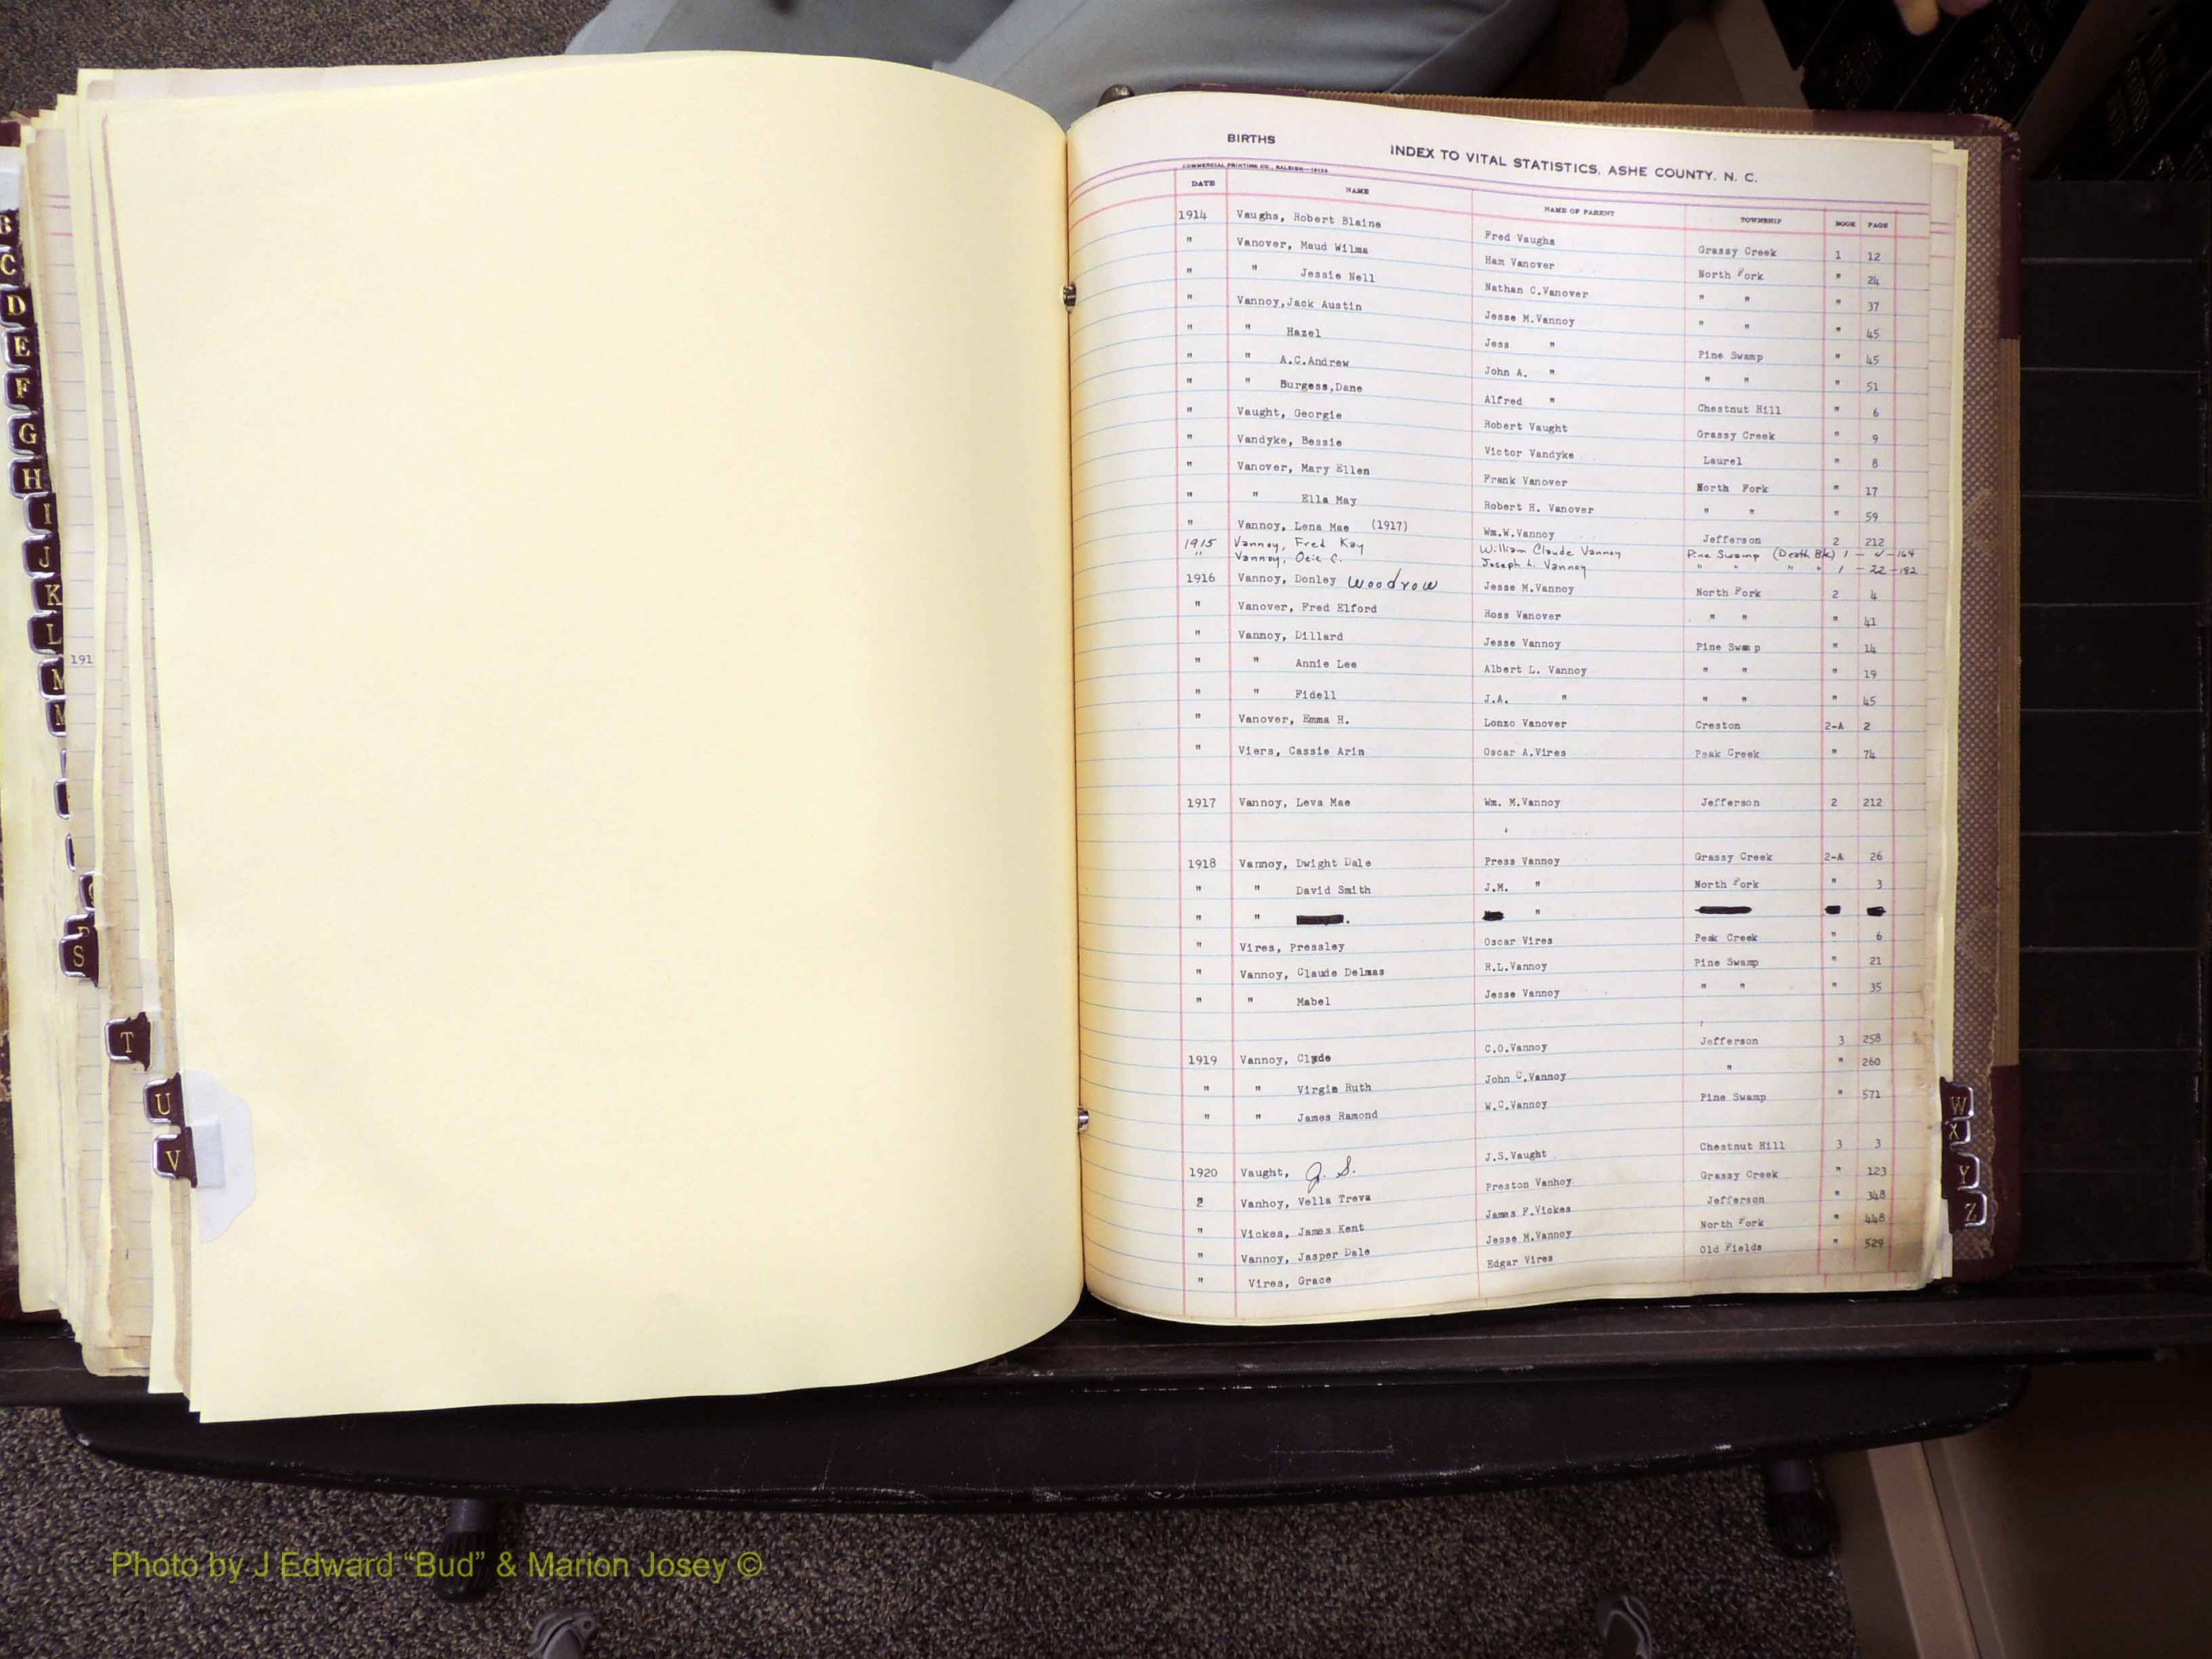 BIRTHS INDEX TO VITAL STATISTICS, ASHE COUNTY, N. C.
COMMERCIAL PRINTING CO., RALEIGH
DATE NAME NAME OF PARENT TOWNSHIP BOOK PAGE
1914 Vaughs, Robert Blaine Fred Vaughs Grassy Creek 1 12
" Vanover, Maud Wilma Ham Vanover North Fork " 24
" " Jessie Nell Nathan C.Vanover " " " 37
" Vannoy,Jack Austin Jesse M.Vannoy " " " 45
" " Hazel Jess " Pine Swamp " 45
" " A.C.Andrew John A. " " " " 51
" " Burgess,Dane Alfred " Chestnut Hill " 6
" Vaught, Georgie Robert Vaught Grassy Creek " 9
" Vandyke, Bessie Victor Vandyke Laurel " 8
" Vanover, Mary Ellen Frank Vanover North Fork " 17
" " Ella May Robert H. Vanover " " " 59
" Vannoy, Lena Mae (1917) Wm.W.Vannoy Jefferson 2 212
1915 Vannoy, Fred Kay William Claude Vannoy Pine Swamp (Death Bk) 1 - 4 - 164
" Vannoy, Otie C. Joseph L. Vannoy " " " " 1 - 22 - 182
1916 Vannoy, Donley Woodrow Jesse M.Vannoy North Fork 2 4
" Vanover, Fred Elford Ross Vanover " " " 41
" Vannoy, Dillard Jesse Vannoy Pine Swamp " 14
" " Annie Lee Albert L. Vannoy " " " 19
" " Fidell J.A. " " " " 45
" Vanover, Emma H. Lonzo Vanover Creston 2-A 2
" Viers, Cassie Arin Oscar A.Vires Peak Creek " 74
1917 Vannoy, Leva Mae Wm. M.Vannoy Jefferson 2 212
1918 Vannoy, Dwight Dale Press Vannoy Grassy Creek 2-A 26
" " David Smith J.M. " North Fork " 3
" " . "
" Vires, Pressley Oscar Vires Peak Creek " 6
" Vannoy, Claude Delmas R.L.Vannoy Pine Swamp " 21
" " Mabel Jesse Vannoy " " " 35
1919 Vannoy, Clyde C.O.Vannoy Jefferson 3 258
" " Virgie Ruth John C.Vannoy " " 260
" " James Ramond W.C.Vannoy Pine Swamp " 571
1920 Vaught, J. S. J.S.Vaught Chestnut Hill 3 3
2 Vanhoy, Vella Treva Preston Vanhoy Grassy Creek " 123
" Vickes, James Kent James F.Vickes Jefferson " 348
" Vannoy, Jasper Dale Jesse M.Vannoy North Fork " 448
" Vires, Grace Edgar Vires Old Fields " 529
B
C
D
E
F
G
H
I
J
K
L
M
191
S
T
U
V
W
X
Y
Z
Photo by J Edward “Bud” & Marion Josey ©